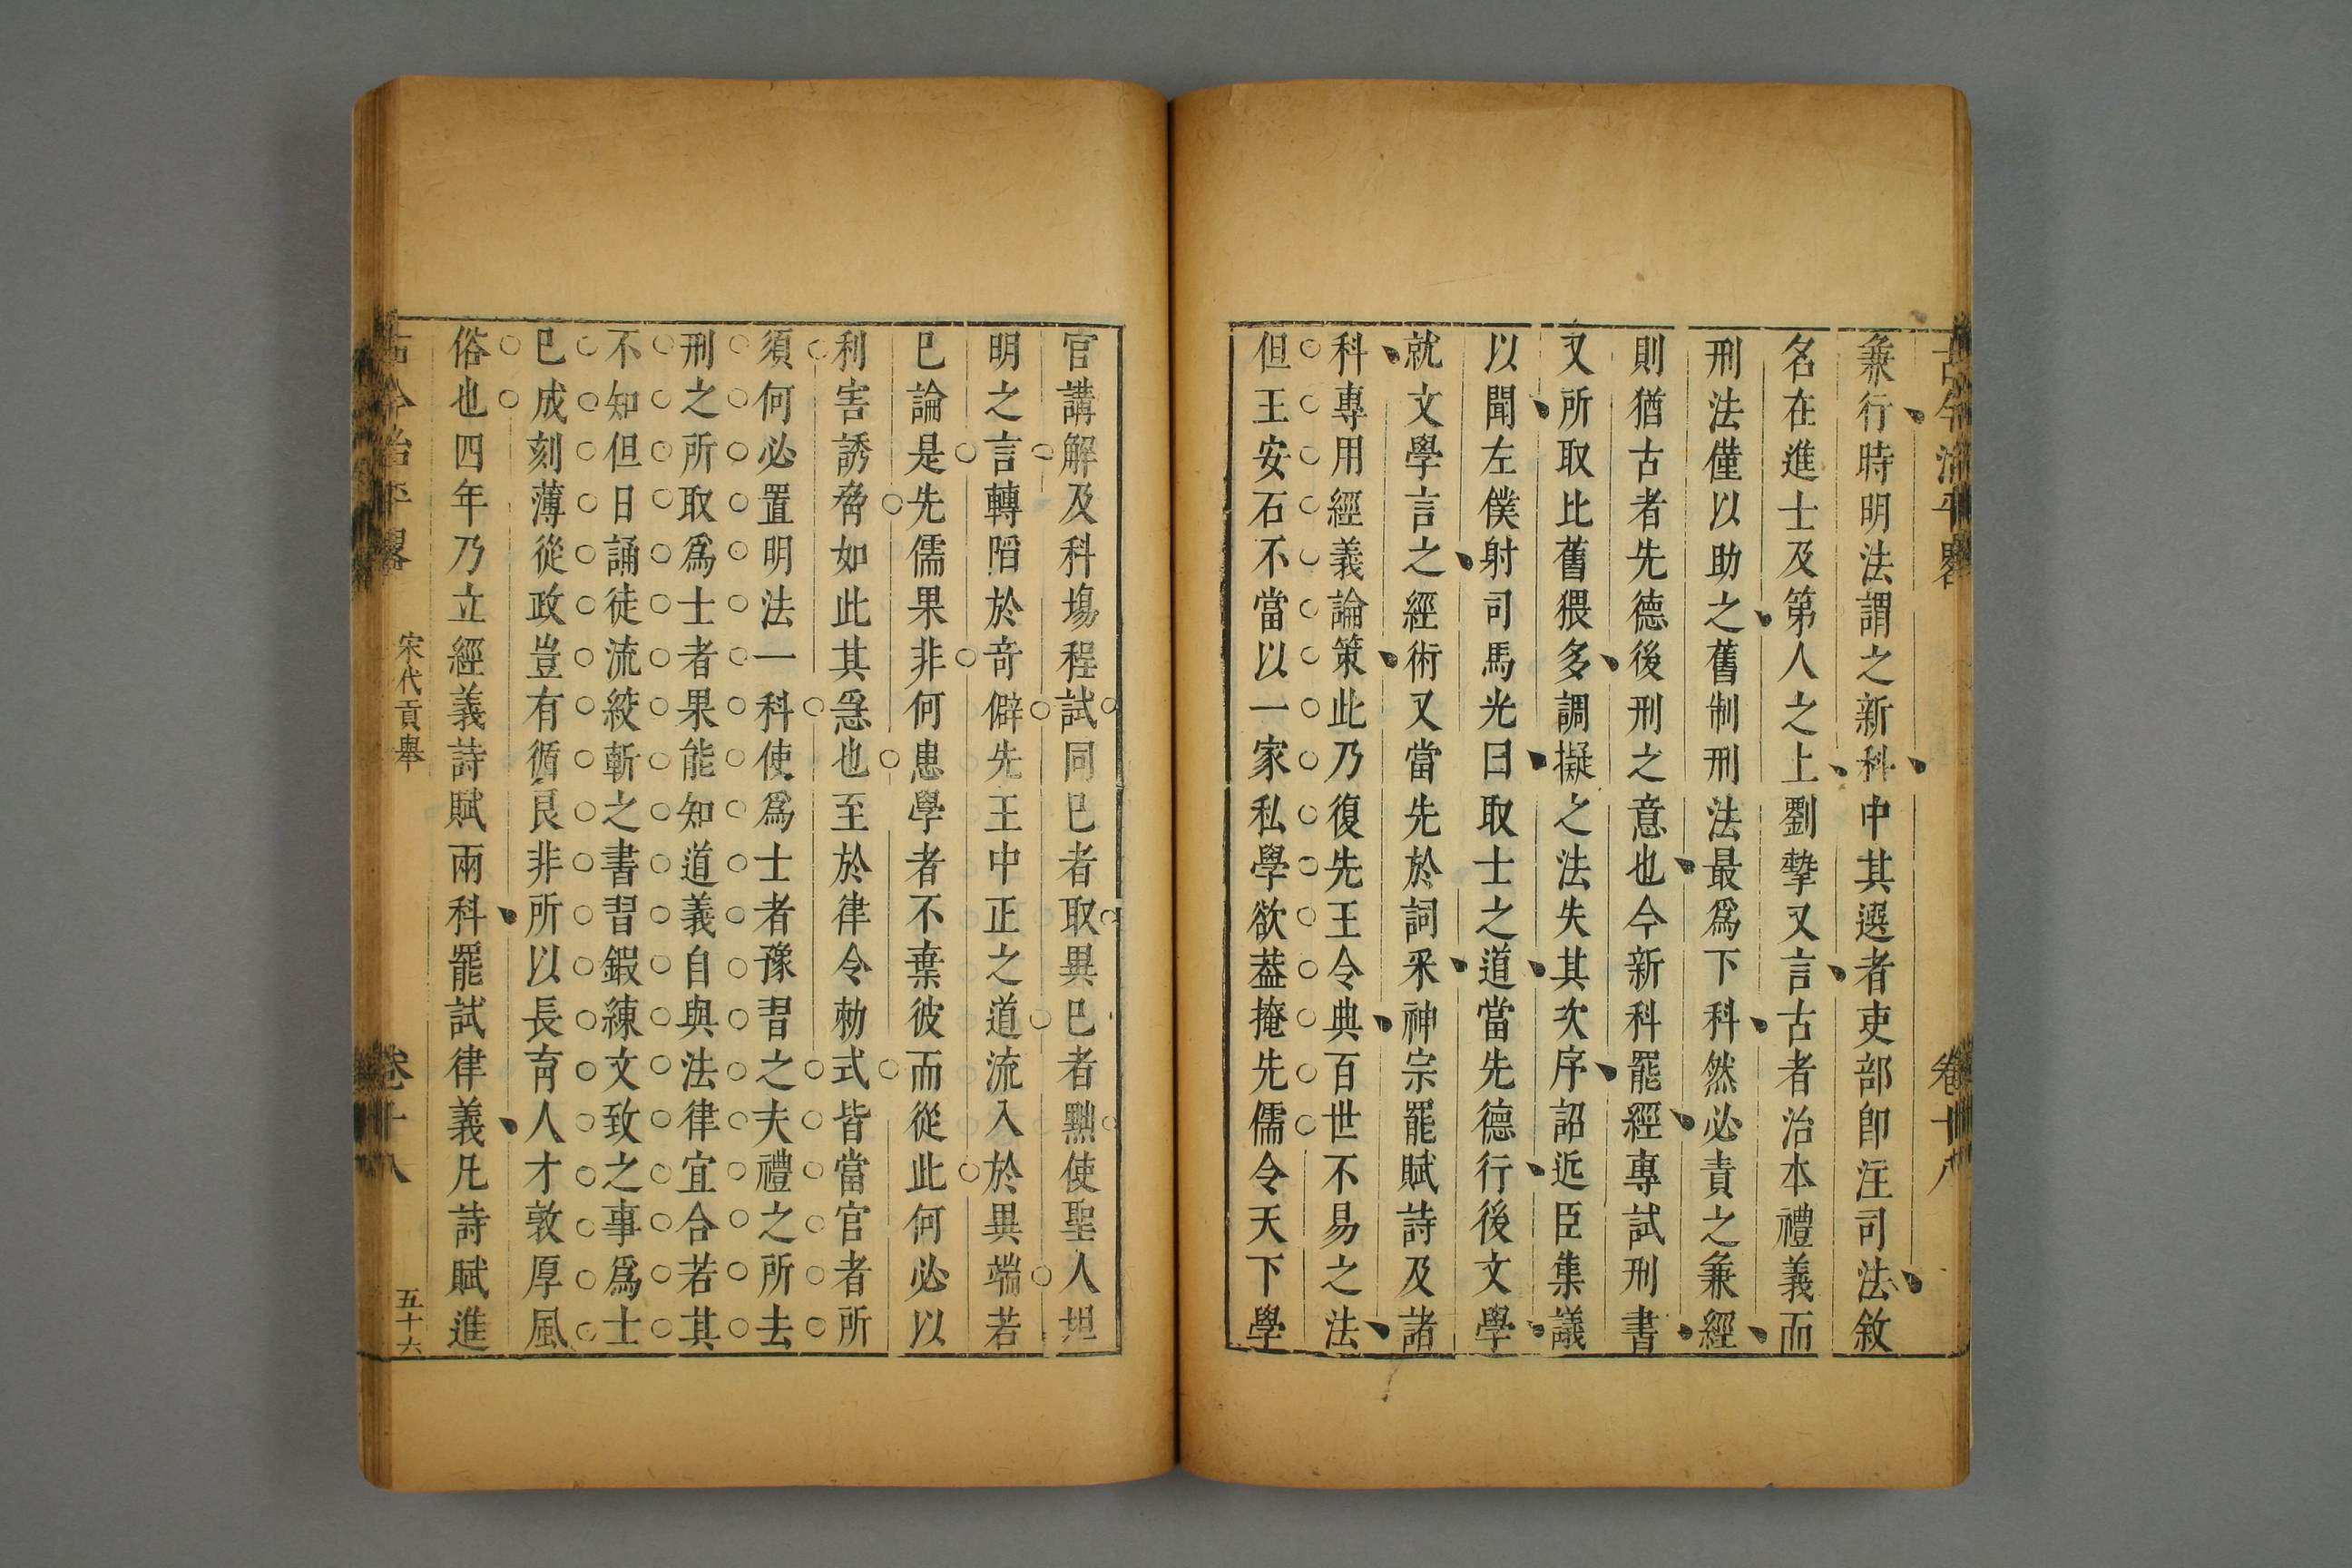 古今治平畧 卷十八
兼行時明法謂之新科中其選者吏部卽注司法敘
名在進士及第人之上劉摯又言古者治本禮義而
刑法僅以助之舊制刑法最爲下科然必責之兼經
則猶古者先德後刑之意也今新科罷經專試刑書
又所取比舊猥多調擬之法失其次序詔近臣集議
以聞左僕射司馬光曰取士之道當先德行後文學
就文學言之經術又當先於詞采神宗罷賦詩及諸
科專用經義論策此乃復先王令典百世不易之法
但王安石不當以一家私學欲葢掩先儒令天下學
官講解及科塲程試同已者取異已者黜使聖人坦
明之言轉陷於竒僻先王中正之道流入於異端若
已論是先儒果非何患學者不棄彼而從此何必以
利害誘脅如此其急也至於律令勅式皆當官者所
須何必置明法一科使爲士者豫習之夫禮之所去
刑之所取爲士者果能知道義自與法律宜合若其
不知但日誦徒流絞斬之書習鍜練文致之事爲士
已成刻薄從政豈有循良非所以長育人才敦厚風
俗也四年乃立經義詩賦兩科罷試律義凡詩賦進
古今治平畧 宋代貢舉 卷十八 五十六